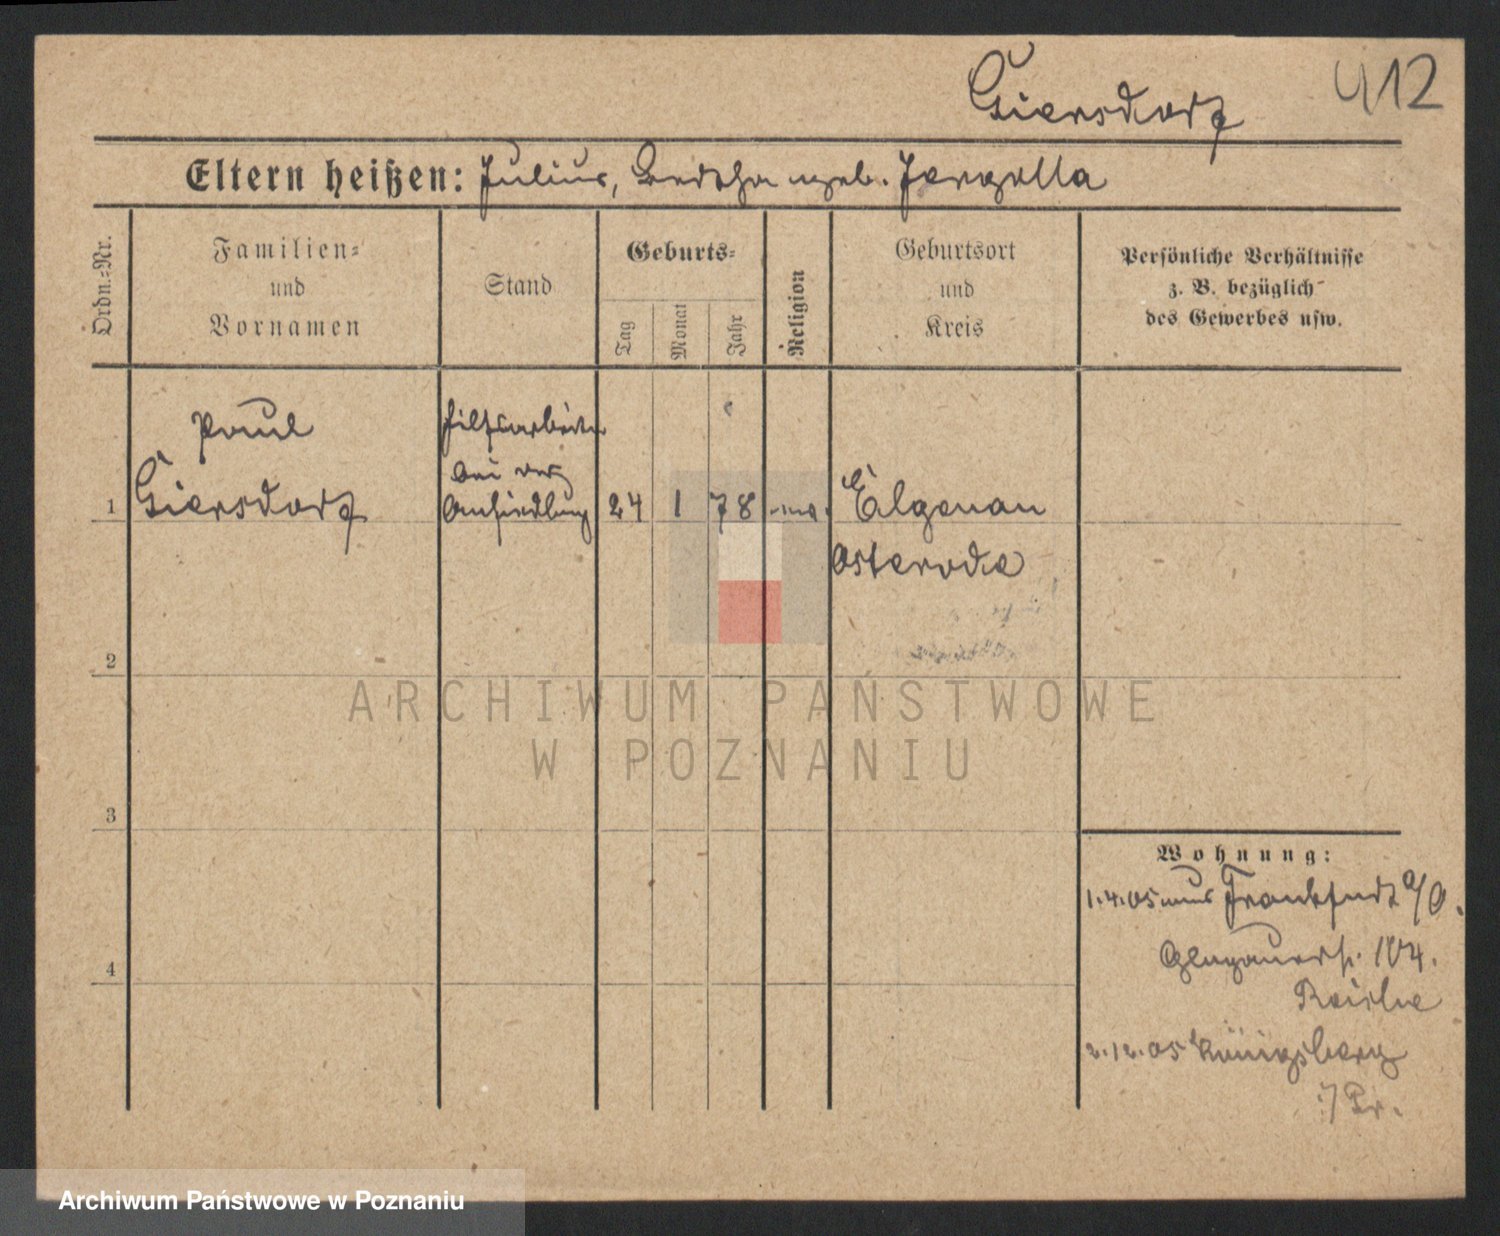 Giersdorf 412
Eltern heißen: Julius, Bertha geb. Jergolla
Ordn.-Nr.
Familien-
und
Vornamen
Stand
Geburts-
Tag
Monat
Jahr
Religion
Geburtsort
und
Kreis
Persönliche Verhältnisse
z. B. bezüglich
des Gewerbes usw.
Paul
Hilfsarbeiter
bei der
1 Giersdorf Ansiedlung 24 1 78 Elgenau
Osterode
2
3
4
Wohnung:
1.4.05 Frankfurt a/O.
Glogauerstr. 104.
2.12.05 Königsberg
i/Pr.
ARCHIWUM PAŃSTWOWE
W POZNANIU
Archiwum Państwowe w Poznaniu